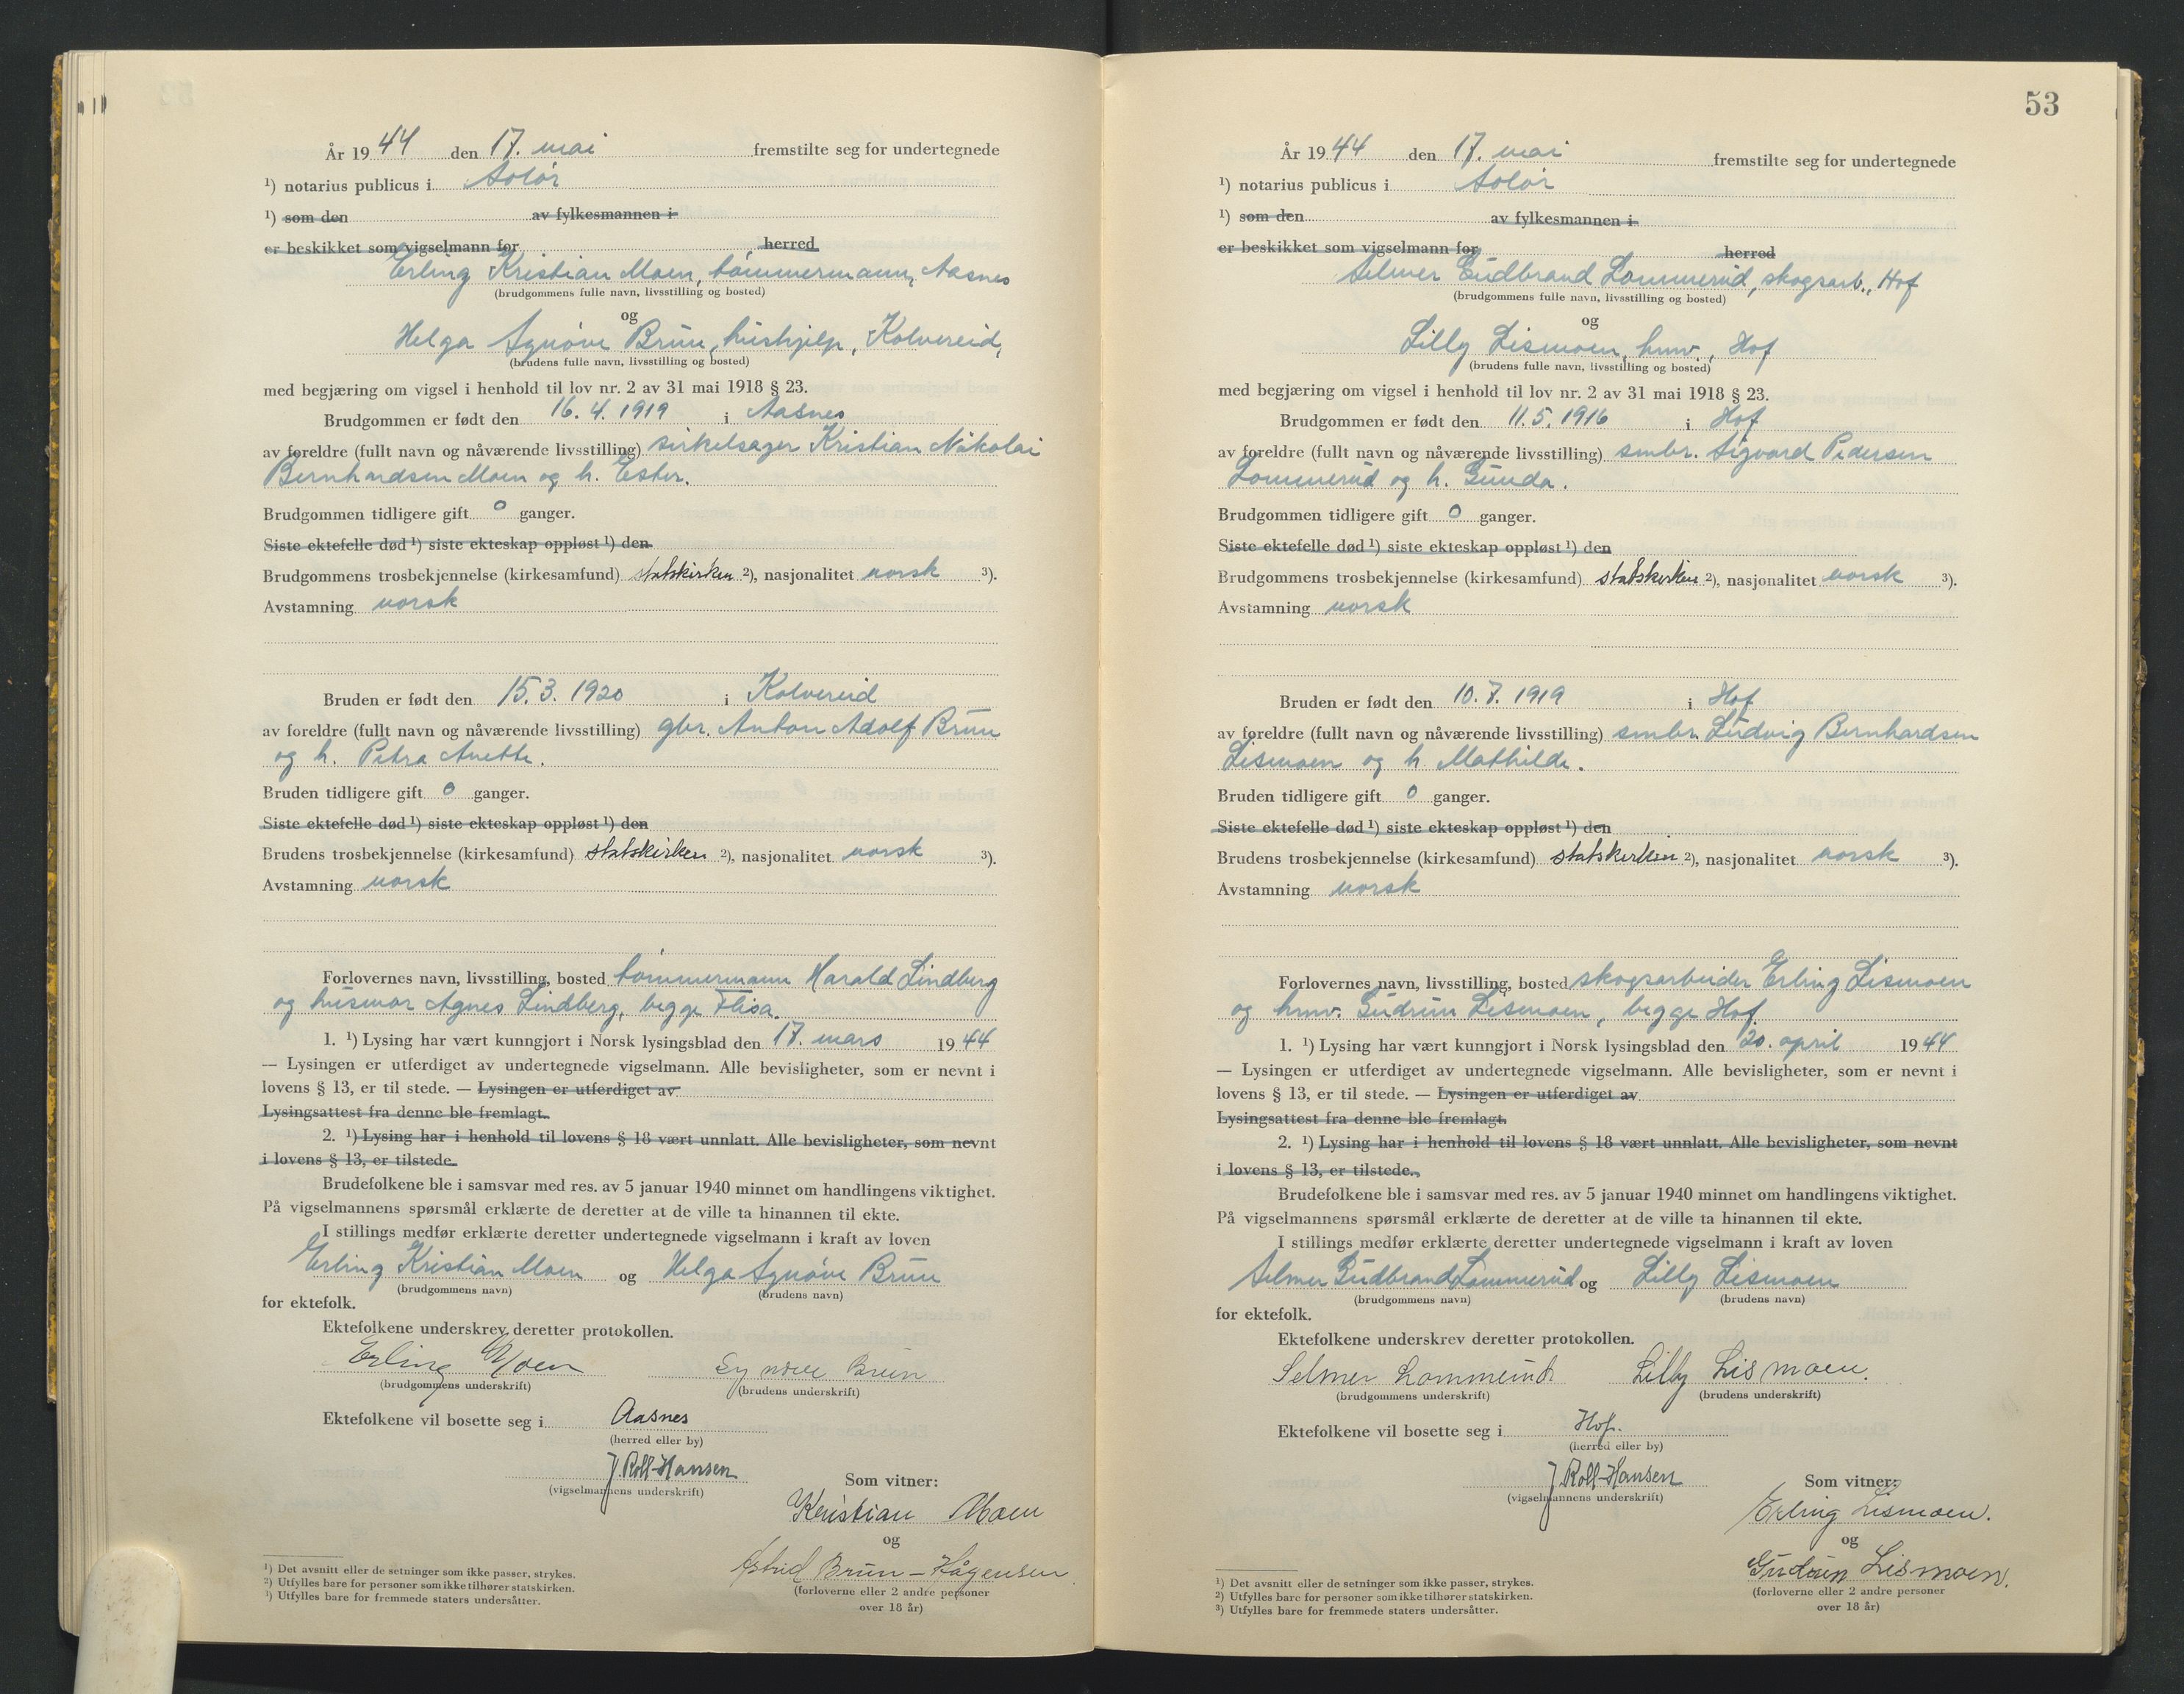 År 1944 den 17. mai fremstilte seg for undertegnede
¹) notarius publicus i Solør
¹) som den av fylkesmannen i
er beskikket som vigselmann for herred
Erling Kristian Moen, tømmermann, Aasnes
(brudgommens fulle navn, livsstilling og bosted)
og
Helga Synøve Brun, hushjelp, Kolvereid,
(brudens fulle navn, livsstilling og bosted)
med begjæring om vigsel i henhold til lov nr. 2 av 31 mai 1918 § 23.
Brudgommen er født den 16. 4. 1919 i Aasnes
av foreldre (fullt navn og nåværende livsstilling) sirkelsager Kristian Nikolai
Bernhardsen Moen og h. Ester.
Brudgommen tidligere gift 0 ganger.
Siste ektefelle død ¹) siste ekteskap oppløst ¹) den
Brudgommens trosbekjennelse (kirkesamfund) statskirken ²), nasjonalitet norsk ³).
Avstamning norsk
Bruden er født den 15. 3. 1920 i Kolvereid
av foreldre (fullt navn og nåværende livsstilling) gbr. Anton Adolf Brun
og h. Petra Anette.
Bruden tidligere gift 0 ganger.
Siste ektefelle død ¹) siste ekteskap oppløst ¹) den
Brudens trosbekjennelse (kirkesamfund) statskirken ²), nasjonalitet norsk ³).
Avstamning norsk
Forlovernes navn, livsstilling, bosted tømmermann Harald Lindberg
og husmor Agnes Lindberg, begge Flisa.
1. ¹) Lysing har vært kunngjort i Norsk lysingsblad den 17. mars 1944
— Lysingen er utferdiget av undertegnede vigselmann. Alle bevisligheter, som er nevnt i
lovens § 13, er til stede. — Lysingen er utferdiget av
Lysingsattest fra denne ble fremlagt.
2. ¹) Lysing har i henhold til lovens § 18 vært unnlatt. Alle bevisligheter, som nevnt
i lovens § 13, er tilstede.
Brudefolkene ble i samsvar med res. av 5 januar 1940 minnet om handlingens viktighet.
På vigselmannens spørsmål erklærte de deretter at de ville ta hinannen til ekte.
I stillings medfør erklærte deretter undertegnede vigselmann i kraft av loven
Erling Kristian Moen og Helga Synøve Brun
(brudgommens navn) (brudens navn)
for ektefolk.
Ektefolkene underskrev deretter protokollen.
Erling Moen Synøve Brun
(brudgommens underskrift) (brudens underskrift)
Ektefolkene vil bosette seg i Aasnes
(herred eller by)
J. Roll-Hansen
(vigselmannens underskrift)
Som vitner:
Kristian Moen
og
Astrid Brun-Hågensen
(forloverne eller 2 andre personer
over 18 år)
¹) Det avsnitt eller de setninger som ikke passer, strykes.
²) Utfylles bare for personer som ikke tilhører statskirken.
¹) Utfylles bare for fremmede staters undersåtter.
53
År 1944 den 17. mai fremstilte seg for undertegnede
¹) notarius publicus i Solør
¹) som den av fylkesmannen i
er beskikket som vigselmann for herred
Selmer Gudbrand Lommerud, skogsarb., Hof
(brudgommens fulle navn, livsstilling og bosted)
og
Lilly Lismoen, hmv., Hof
(brudens fulle navn, livsstilling og bosted)
med begjæring om vigsel i henhold til lov nr. 2 av 31 mai 1918 § 23.
Brudgommen er født den 11. 5. 1916 i Hof
av foreldre (fullt navn og nåværende livsstilling) smbr. Sigvard Pedersen
Lommerud og h. Gunda.
Brudgommen tidligere gift 0 ganger.
Siste ektefelle død ¹) siste ekteskap oppløst ¹) den
Brudgommens trosbekjennelse (kirkesamfund) statskirken ²), nasjonalitet norsk ³).
Avstamning norsk
Bruden er født den 10. 7. 1919 i Hof
av foreldre (fullt navn og nåværende livsstilling) smbr. Ludvig Bernhardsen
Lismoen og h. Mathilde.
Bruden tidligere gift 0 ganger.
Siste ektefelle død ¹) siste ekteskap oppløst ¹) den
Brudens trosbekjennelse (kirkesamfund) statskirken ²), nasjonalitet norsk ³).
Avstamning norsk
Forlovernes navn, livsstilling, bosted skogsarbeider Erling Lismoen
og hmv. Gudrun Lismoen, begge Hof.
1. ¹) Lysing har vært kunngjort i Norsk lysingsblad den 20. april 1944
— Lysingen er utferdiget av undertegnede vigselmann. Alle bevisligheter, som er nevnt i
lovens § 13, er til stede. — Lysingen er utferdiget av
Lysingsattest fra denne ble fremlagt.
2. ¹) Lysing har i henhold til lovens § 18 vært unnlatt. Alle bevisligheter, som nevnt
i lovens § 13, er tilstede.
Brudefolkene ble i samsvar med res. av 5 januar 1940 minnet om handlingens viktighet.
På vigselmannens spørsmål erklærte de deretter at de ville ta hinannen til ekte.
I stillings medfør erklærte deretter undertegnede vigselmann i kraft av loven
Selmer Gudbrand Lommerud og Lilly Lismoen
(brudgommens navn) (brudens navn)
for ektefolk.
Ektefolkene underskrev deretter protokollen.
Selmer Lommerud Lilly Lismoen.
(brudgommens underskrift) (brudens underskrift)
Ektefolkene vil bosette seg i Hof.
(herred eller by)
J. Roll-Hansen
(vigselmannens underskrift)
Som vitner:
Erling Lismoen.
og
Gudrun Lismoen.
(forloverne eller 2 andre personer
over 18 år)
¹) Det avsnitt eller de setninger som ikke passer, strykes.
²) Utfylles bare for personer som ikke tilhører statskirken.
³) Utfylles bare for fremmede staters undersåtter.